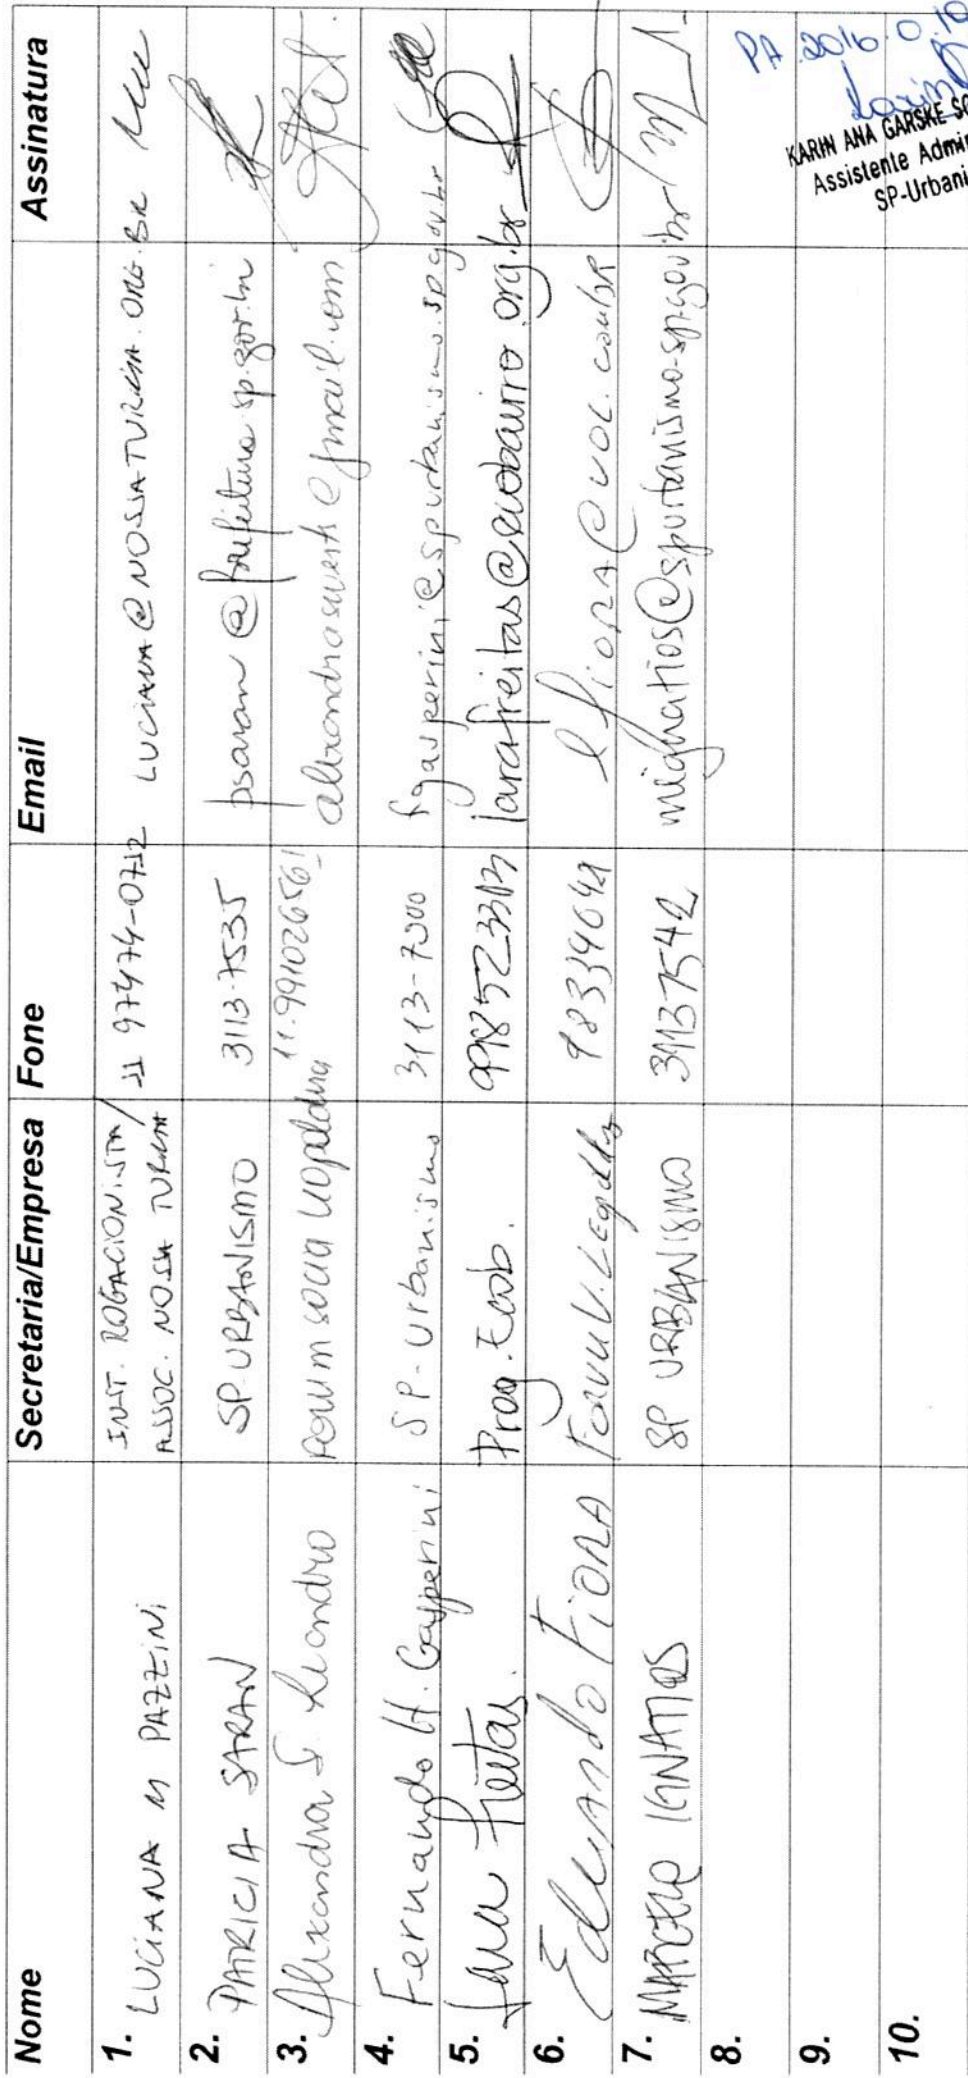 Nome Secretaria/Empresa Fone Email Assinatura
1. LUCIANA M PAZZINI INST. ROGACIONISTA / ASSOC. NOSSA TURMA 11 97474-0712 LUCIANA@NOSSATURMA.ORG.BR
2. PATRICIA SARAN SP-URBANISMO 3113-7535 psaran@prefeitura.sp.gov.br
3. Alexandra S. Leandro Forum social Leopoldina 11.991026561 @gmail.com
4. Fernando H. Gasperini SP-Urbanismo 3113-7000 fgasperini@spurbanismo.sp.gov.br
5. Lara Freitas. Prog. Ecob. 998523313 larafreitas@ecobairro.org.br
6. Eduardo Fiora Forum V. Leopoldina 983346421 efiora@uol.com.br
7. MARCELO IGNATIOS SP URBANISMO 31137542 mignatios@spurbanismo.sp.gov.br
8.
9.
10.
PA 2016.0.10
Karin
KARIN ANA GARSKE SO
Assistente Admin
SP-Urbani